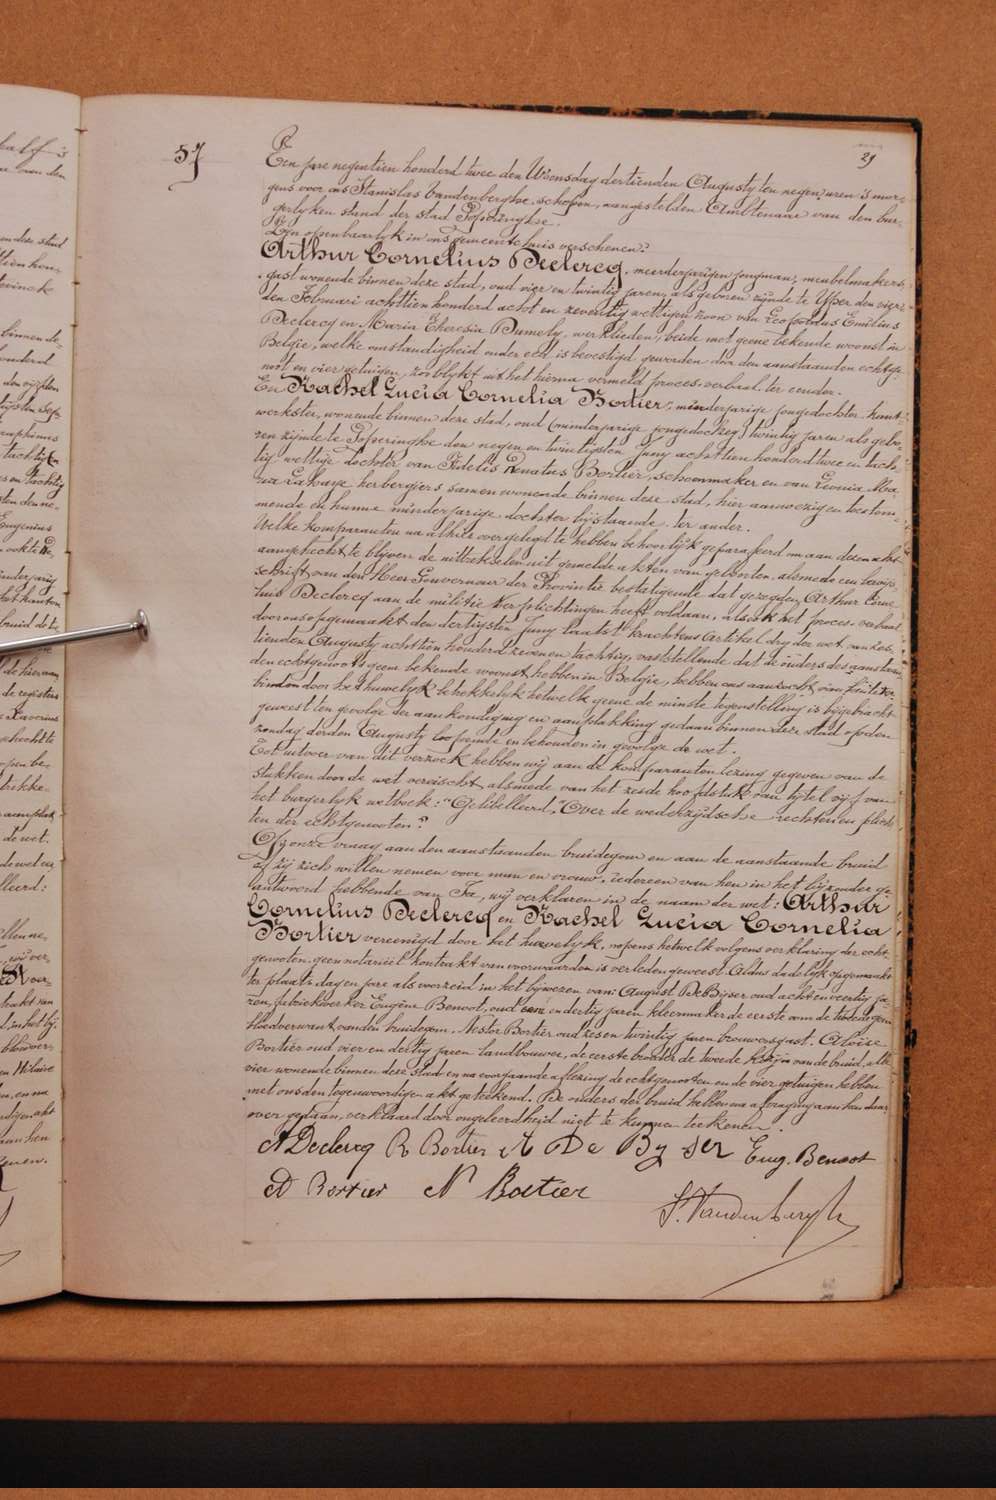 57
29
Een jare negentien honderd twee den Woensdag dertienden Augusty ten negen uren 's mor-
gens voor ons Stanislas Vandenberghe, schepen, aangestelden Ambtenaar van den bur-
gerlyken stand der stad Poperinghe.
Zyn openbaarlyk in ons gemeentehuis verschenen:
Arthur Cornelius Declercq, meerderjarigen jongman, meubelmakers-
gast wonende binnen deze stad, oud vier en twintig jaren, als geboren zynde te Yper den vier
den Februari achttien honderd acht en zeventig wettigen zoon van Leopoldus Emilius
Declercq en Maria Theresia Dumely, werklieden, beide met geene bekende woonst in
Belgie, welke omstandigheid onder eed is bevestigd geworden door den aanstaanden echtge-
noot en vier getuigen, zoo blykt uit het hierna vermeld proces-verbaal ter eender.
En Rachel Lucia Cornelia Bortier, minderjarige jongedochter kant-
werkster, wonende binnen deze stad, oud (minderjarige jongedochter) twintig jaren als gebo-
ren zijnde te Poperinghe den negen en twintigsten Juny achttien honderd twee en tach
tig wettige dochter van Fidelis Renatus Bortier, schoenmaker en van Leonia Ma
ria Lahaye herbergiers samen wonende binnen deze stad, hier aanwezig en toestem-
mende en hunne minderjarige dochter bijstaande ter ander.
Welke komparanten na alhier overgelegd te hebben behoorlijk geparafeerd om aan dezen akt
aangehecht te blijven de uittreksels uit gemelde akten van geboorten, alsmede een bewijs
schrift van den Heer Gouverneur der Provintie bestatigende dat gezegden Arthur Corne
lius Declercq aan de militie verplichtingen heeft voldaan, alsook het proces-verbaal
door ons opgemaakt den dertigsten Juny laatst krachtens Artikel dry der wet van zes-
tienden Augusty achttien honderd zeven en tachtig, vaststellende dat de ouders des aanstaan-
den echtgenoots geene bekende woonst hebben in Belgie, hebben ons aanzocht om hunne ver-
bindtenis door het huwelyk te trekkelyk hetwelk geene de minste tegenstelling is bijgebracht
geweest ten gevolge der aankondiging en aanplakking gedaan binnen deze stad op den
zondag derden Augusty loopende en behouden in gevolge de wet.
Tot uitvoer van dit verzoek hebben wij aan de komparanten lezing gegeven van de
stukken door de wet vereischt, alsmede van het zesde hoofdstuk van tijtel vijf van
het burgerlyk wetboek: "Getitelleerd: "Over de wederzijdsche rechten en plich-
ten der echtgenooten."
Op onze vraag aan den aanstaanden bruidegom en aan de aanstaande bruid
of zij zich willen nemen voor man en vrouw, iedereen van hen in het bijzonder ge
antwoord hebbende van Ja, wij verklaren in de naam der wet: Arthur
Cornelius Declercq en Rachel Lucia Cornelia
Bortier vereenigd door het huwelyk, nopens hetwelk volgens verklaring der echt-
genooten geen notarieel kontrakt van voorwaarden is verleden geweest. Aldus dadelyk opgemaakt
ter plaats dag en jare als voorzeid in het bijwezen van: August De Byser oud acht en veertig ja-
ren, fabriekwerker Eugène Benoot, oud een en dertig jaren kleermaker de eerste oom de tweede geen
bloedverwant van den bruidegom. Nestor Bortier oud zes en twintig jaren brouwersgast. Aloise
Bortier oud vier en dertig jaren landbouwer, de eerste broeder de tweede kozijn van de bruid, alle
vier wonende binnen deze stad en na voorgaande aflezing de echtgenooten en de vier getuigen hebben
met ons den tegenwoordigen akt geteekend. De ouders der bruid hebben na afvraging aan hun daar-
over gedaan, verklaard door ongeleerdheid niet te kunnen teekenen.
A Declercq R Bortier A De Byser Eug. Benoot
A Bortier N Bortier
S. Vandenberghe